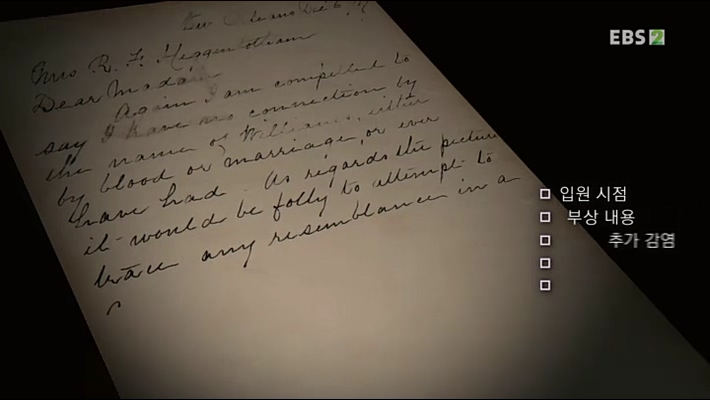 New Orleans Dec 6
Mrs R. F. Heggenbotham
Dear Madam
Again I am compelled to
say I have no connection by
the name of Williams, either
by blood or marriage, or ever
have had. As regards the picture
it would be folly to attempt to
trace any resemblance in a
EBS2
입원 시점
부상 내용
추가 감염